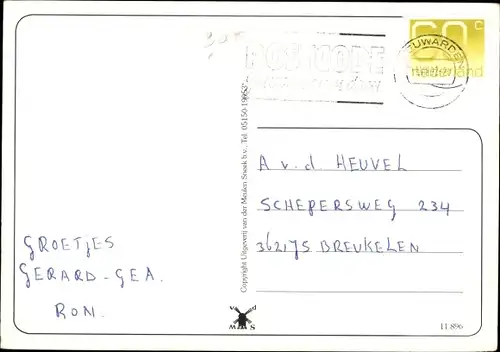 60c
nederland
POSTCODE
GROETJES
GERARD - GEA.
RON.
Copyright Uitgeverij van der Meulen Sneek b.v., Tel. 05150-19053
A v.d HEUVEL
SCHEPERSWEG 234
3621JS BREUKELEN
v d
W M S
11.896